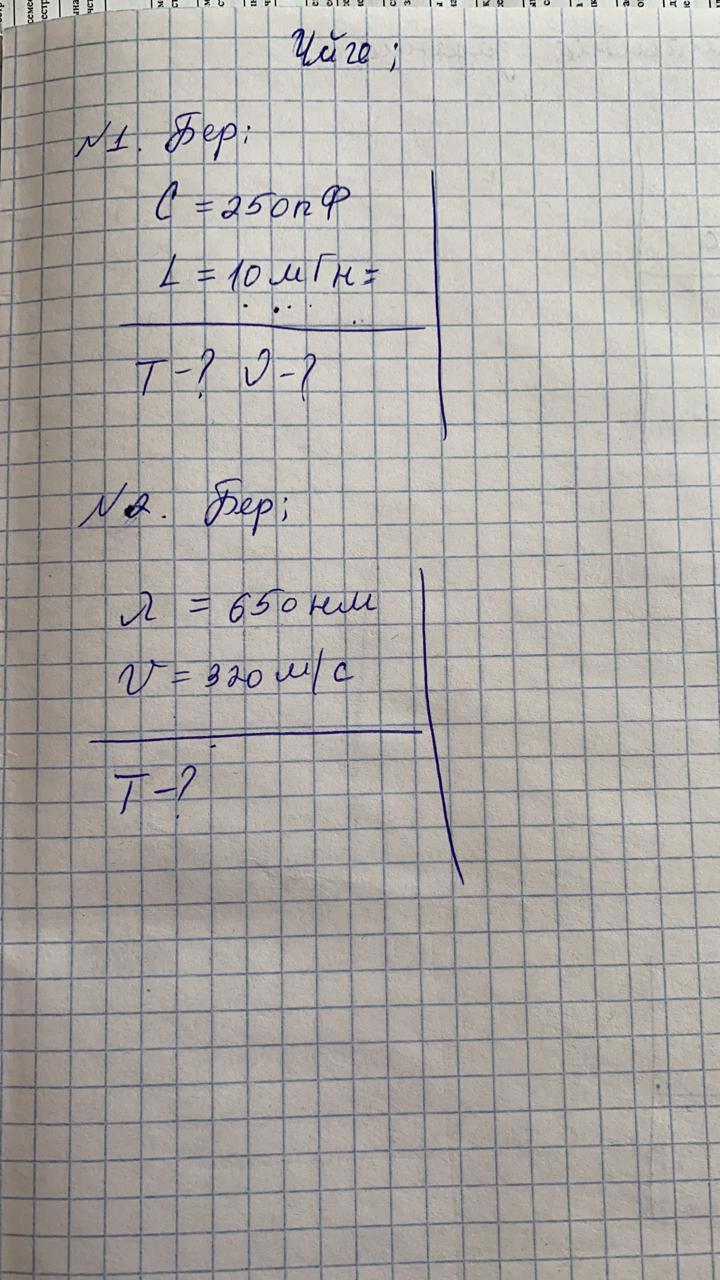 Үйге;
№1. Бер;
C = 250пФ
L = 10мГн =
T-? ν-?
№2. Бер;
λ = 650нм
v = 320м/с
T-?